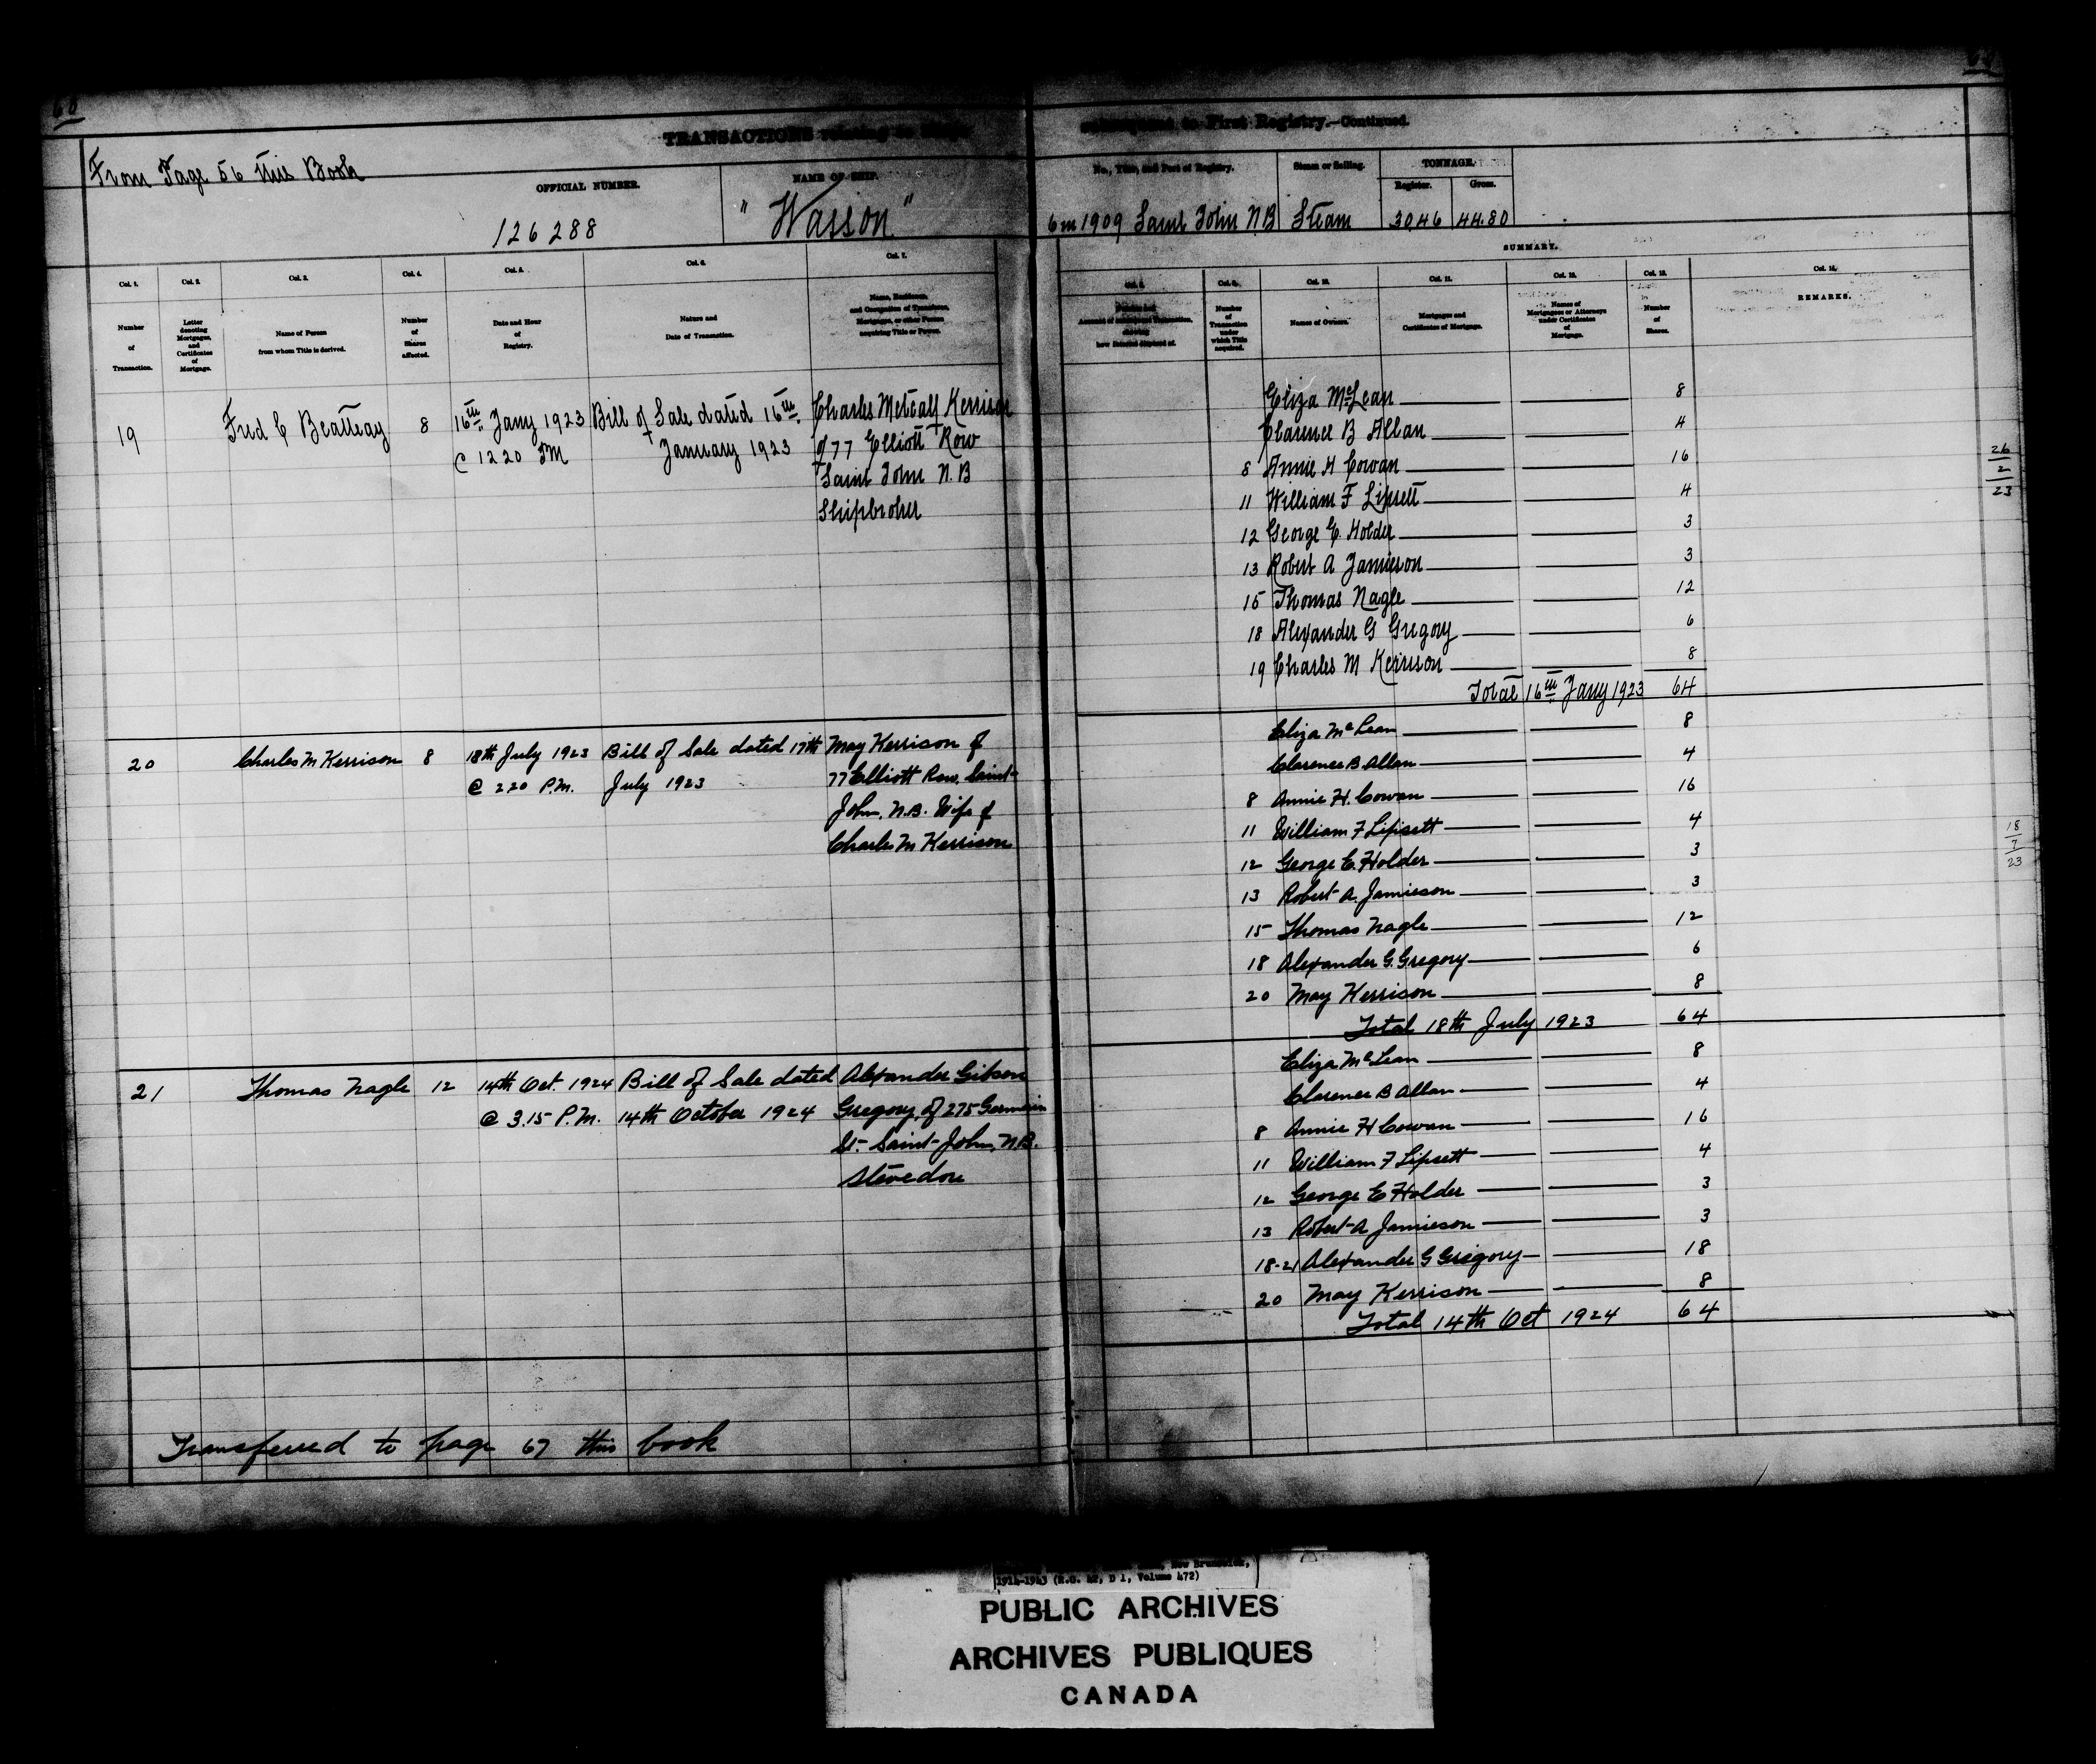 60
TRANSACTIONS relating to Ships
subsequent to First Registry.—Continued.
From Page 56 this Book
OFFICIAL NUMBER.
NAME OF SHIP.
No., Title, and Port of Registry.
Steam or Sailing.
TONNAGE.
Register.
Gross.
126288
"Wasson"
6 in 1909 Saint John N.B
Steam
30.46
44.80
SUMMARY.
Col. 1.
Col. 2.
Col. 3.
Col. 4.
Col. 5.
Col. 6.
Col. 7.
Col. 9.
Col. 10.
Col. 11.
Col. 12.
Col. 13.
Col. 14.
Number of Transaction.
Letter denoting Mortgages, and Certificates of Mortgage.
Name of Person from whom Title is derived.
Number of Shares affected.
Date and Hour of Registry.
Nature and Date of Transaction.
Name, Residence, and Occupation of Transferee, Mortgagee, or other Person acquiring Title or Power.
how Interest disposed of.
Number of Transaction under which Title acquired.
Names of Owners.
Mortgages and Certificates of Mortgage.
Names of Mortgagees or Attorneys under Certificates of Mortgage.
Number of Shares.
REMARKS.
19 Fred C Beatteay 8 16th Jany 1923 Bill of Sale dated 16th Charles Metcalf Kerrison
@ 12 20 PM January 1923 of 77 Elliott Row
Saint John N.B
Shipbroker
Eliza McLean 8
Clarence B Allan 4
8 Annie H Cowan 16
11 William F Lipsett 4
12 George E. Holder 3
13 Robert A Jamieson 3
15 Thomas Nagle 12
18 Alexander G Gregory 6
19 Charles M Kerrison 8
Total 16th Jany 1923 64
26
2
23
20 Charles M Kerrison 8 18th July 1923 Bill of Sale dated 17th May Kerrison of
@ 2 20 P.M. July 1923 77 Elliott Row, Saint
John, N.B. Wife of
Charles M Kerrison
Eliza McLean 8
Clarence B. Allan 4
8 Annie H. Cowan 16
11 William F Lipsett 4
12 George E. Holder 3
13 Robert A. Jamieson 3
15 Thomas Nagle 12
18 Alexander G. Gregory 6
20 May Kerrison 8
Total 18th July 1923 64
18
7
23
21 Thomas Nagle 12 14th Oct. 1924 Bill of Sale dated Alexander Gibson
@ 3.15 P.M. 14th October 1924 Gregory, of 275 Germain
St. Saint John, N.B.
Stevedore
Eliza McLean 8
Clarence B Allan 4
8 Annie H Cowan 16
11 William F Lipsett 4
12 George E Holder 3
13 Robert A Jamieson 3
18-21 Alexander G Gregory 18
20 May Kerrison 8
Total 14th Oct 1924 64
Transferred to page 67 this book
New Brunswick,
1914-1943 (R.G. 42, D 1, Volume 472)
PUBLIC ARCHIVES
ARCHIVES PUBLIQUES
CANADA